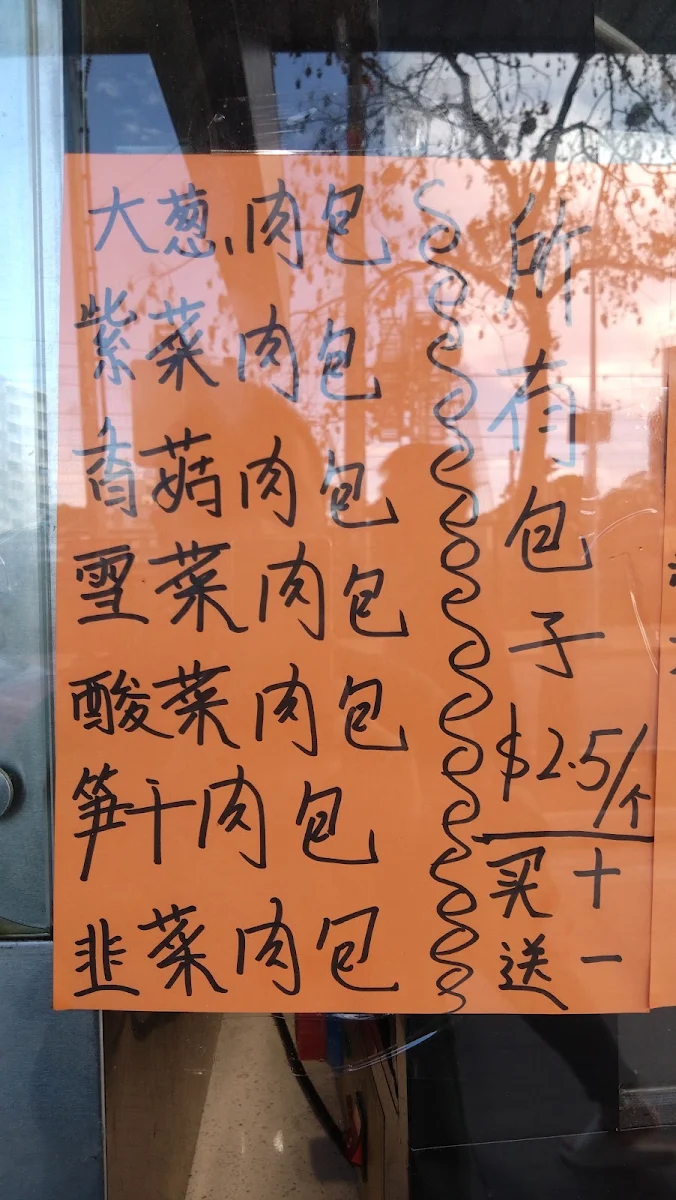 大葱肉包
紫菜肉包
香菇肉包
雪菜肉包
酸菜肉包
笋干肉包
韭菜肉包
所有包子
$2.5/个
买十
送一